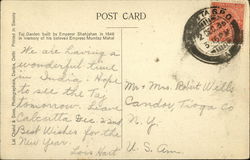 POST CARD
Taj Garden built by Emperor Shahjahan in 1648
in memory of his beloved Empress Mumtaz Mahal
We are having a
wonderful time
in India. Hope
to see the Taj
tomorrow. Leave
Calcutta Dec 22nd
Best Wishes for the
New Year.
Lois Hart
Mr + Mrs Robert Wills
Candor, Tioga Co
N.Y.
U.S. Am.